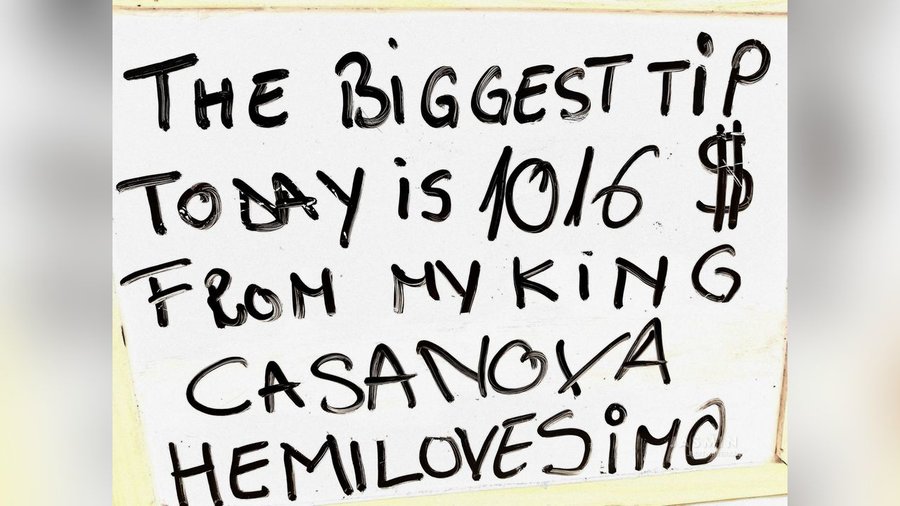 THE BiGGEST TiP
TODAY is 1016 $
FROM MY KiNG
CASANOVA
HEMILOVESiMO.
ADMIN